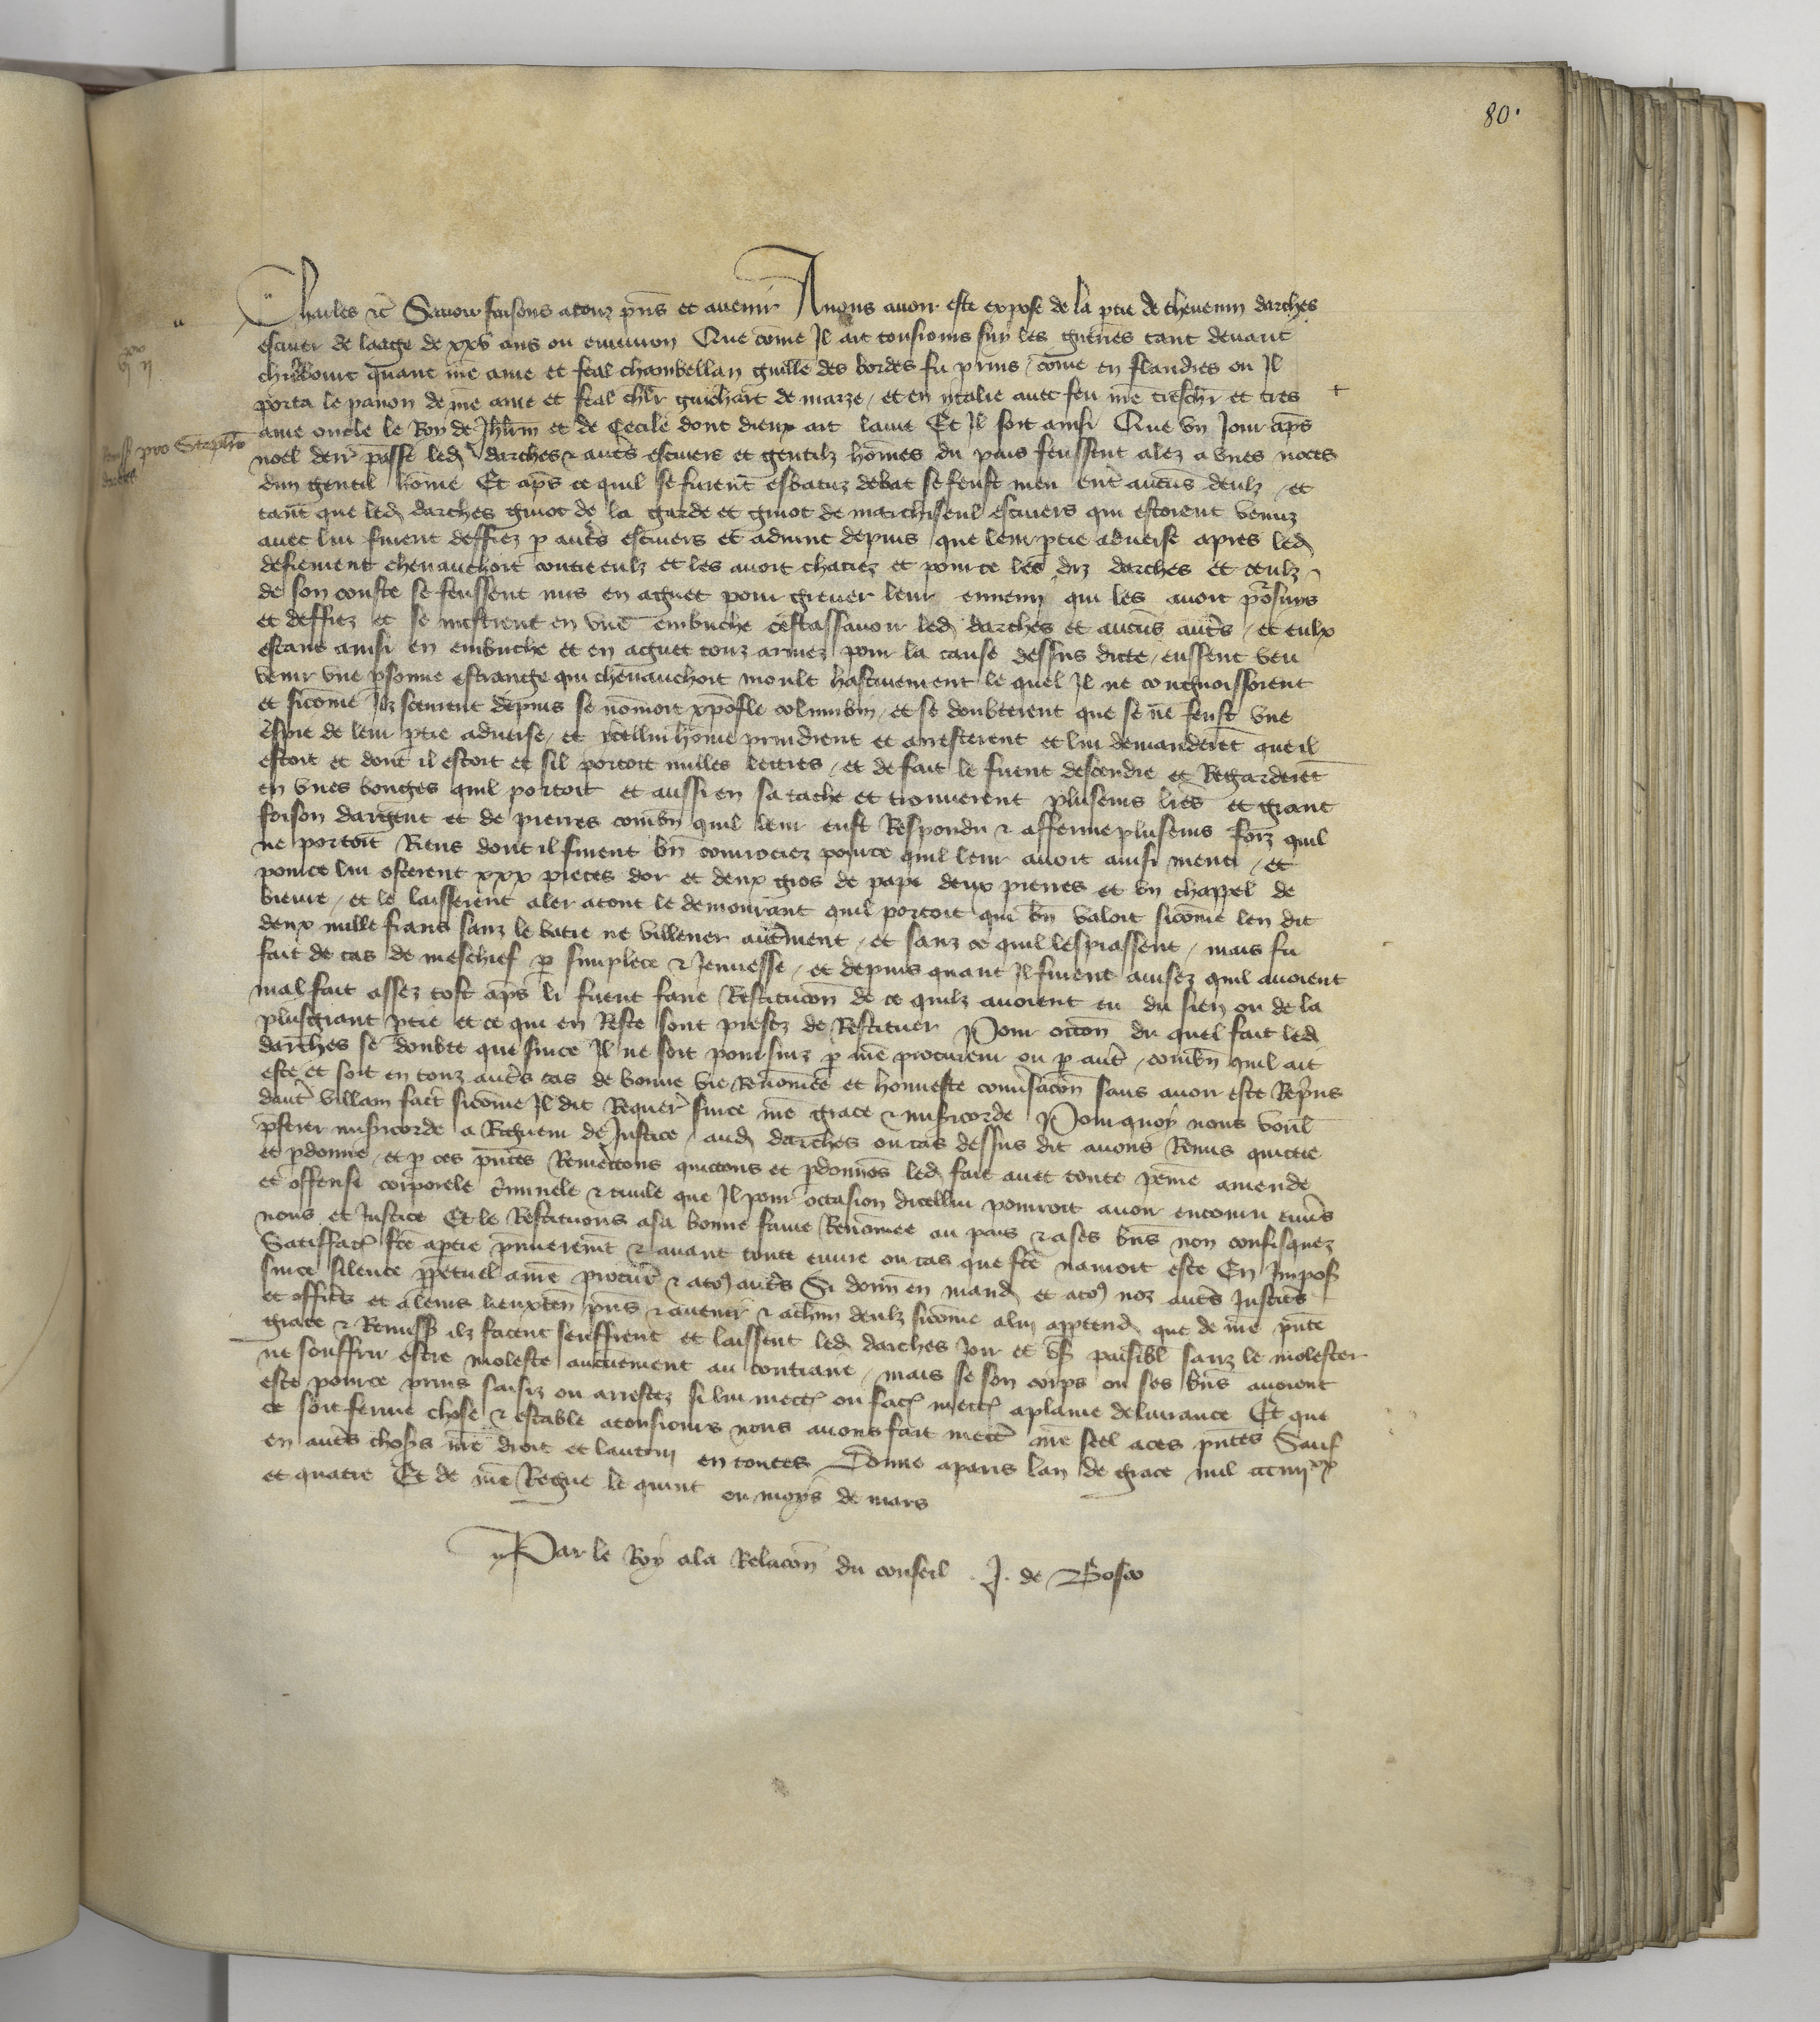 80.
Charles etc̃ Savoir faisons a touz p̃ns et avenir A nous avoir este expose de la p̃tie de thevenin darches
escuier de laage de xxv ans ou environ Que com̃e Il ait tousiours suy les guerres tant devant
quant ñre ame et feal chambellan guill̃e des bordes fu prins / com̃e en flandres ou Il
porta le panon de ñre ame et feal chl̃r guichart de marze / et en ytalie avec feu ñre treschr̃ et tres
ame oncle le Roy de Jhr̃lm et de Cecile dont dieux ait lame Et Il soit ainsi Que un Jour ap̃s
noel der̃ passe led darches & aut̃s escuiers et gentilz hom̃es du pais feussent alez a unes noces
dun gentil hom̃e Et ap̃s ce quil se furent esbatuz debat se feust meu ent̃ aucuns deulz / et
tant que led darches guiot de la garde et guiot de marchiseul escuiers qui estoient venuz
avec lui furent deffiez p aut̃s escuiers et advint depuis que leur p̃tie adverse apres led
defiement chevauchoit contre eulz et les avoit chaciez et pour ce les diz darches et ceulz
de son couste se feussent mis en aguet pour grever leur ennemi qui les avoit p̃rsuys
et deffiez et se mistrent en une embuche cestassavoir led darches et aucuns aut̃s / et eulx
estans ainsi en embuche et en aguet touz armez pour la cause dessus dicte / eussent veu
venir une p̃sonne estrange qui chevauchoit moult hastivement le quel Il ne congnoissoient
et sicom̃e Ilz sceurent depuis se nom̃oit xp̃ofle columbin / et se doubterent que se ne feust une
espie de leur p̃tie adverse / et ycellui hom̃e prindrent et arresterent et lui demanderẽt que il
estoit et dont il estoit et sil portoit nulles lettres / et de fait le firent descendre et Regarderẽt
en unes bouges quil portoit et aussi en sa tache et trouverent plusieurs lr̃es et grant
foison dargent et de pierres combñ quil leur eust Respondu & afferme plusieurs foiz quil
ne portoit Riens dont il furent bñ courrociez pour ce quil leur avoit ainsi menti / et
pour ce lui osterent xxx pieces dor et deux gros de pape deux pierres et un chappel de
bievre / et le laisserent aler a tout le demourant quil portoit qui bñ valoit sicom̃e len dit
deux mille frans sanz le batre ne villener autrement / et sanz ce quil lespiassent / mais fu
fait de cas de meschief p simplece & Jeunesse / et depuis quant Il furent avisez quil avoient
mal fait assez tost ap̃s li firent faire Restitucõn de ce quilz avoient eu du sien ou de la
plusgrant p̃tie et ce qui en Reste sont prestz de Restituer Pour occõn du quel fait led
darches se doubte que sur ce Il ne soit poursuiz p ñre procureur ou p aut̃ / combñ quil ait
este et soit en touz aut̃s cas de bonne vie Renom̃ee et honneste conṽsacõn sans avoir este Rep̃ns
daut̃ villain fait sicom̃e Il dit Requer̃ sur ce ñre grace & mis̃icorde Pour quoy nous voul̃
p̃ferer mis̃icorde a Rigueur de Justice / aud darches ou cas dessus dit avons Remis quictie
et p̃donne / et p ces p̃ntes Remectons quictons et p̃donnos led fait avec toute peine amende
et offense corporele c̃iminele & civile que Il pour occasion dicellui pourroit avoir encouru enṽs
nous et Justice Et le Restituons a sa bonne fame Renom̃ee au pais & a ses bñs non confisquez
Satisfact̃ fc̃e a p̃tie p̃mierem̃t & avant toute euvre ou cas que fc̃e nauroit este En Impos̃
sur ce silence p̃petuel a ñre procur̃ & a to9 aut̃s Si donn̄ en mand et a to9 noz aut̃s Justic̃s
et offic̃s et a leurs lieuxten̄ p̃ns & avenir & a chun̄ deulz sicom̃e a lui apptend que de ñre p̃nte
grace & Remiss̃ ilz facent seuffrent et laissent led darches Joir et us̃ paisibl̃ sanz le molester
ne souffrir estre moleste aucunement au contraire / mais se son corps ou ses bñs avoient
este pour ce prins saisiz ou arrestez si lui mect̃ ou fac̃ mectr̃ a plaine delivrance Et que
ce soit ferme chose & estable a tousiours nous avons fait mect̃ ñre seel a ces p̃ntes Sauf
en aut̃s choses ñre droit et lautrui en toutes Donne a paris lan de grace mil ccciiij xx
et quatre Et de ñre Regne le quint ou moys de mars
Par le Roy a la Relacõn du conseil . J. de Bosco